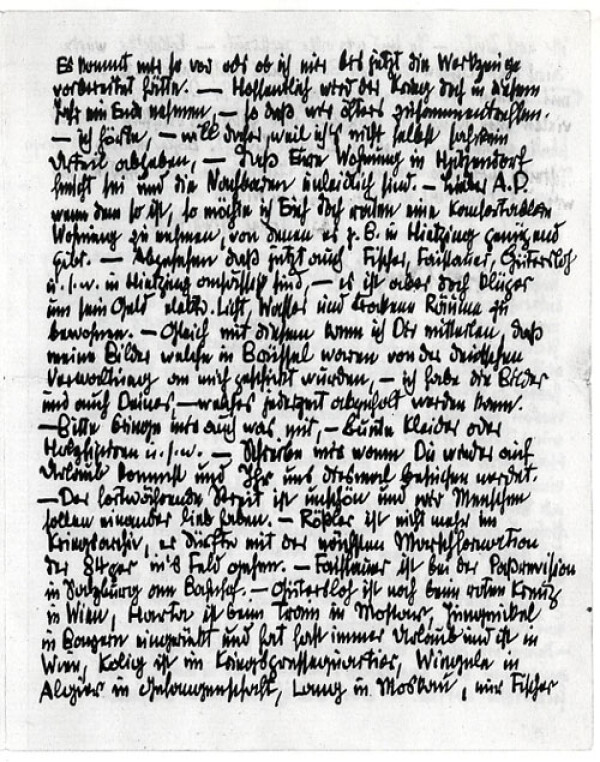 Es kommt mir so vor als ob ich mir bis jetzt die Werkzeuge
vorbereitet hätte. — Hoffentlich wird der Krieg doch in diesem
Jahr ein Ende nehmen, — so daß wir öfters zusammentreffen.
— ich hörte, — will daher, weil ich's nicht selbst sah, kein
Urteil abgeben, — daß Eure Wohnung in Hetzendorf
feucht sei und die Nachbaren unleidlich sind. — Lieber A.P.
wenn dem so ist, so möchte ich Euch doch raten eine komfortablere
Wohnung zu nehmen, von denen es z.B. in Hietzing genügend
gibt. — Abgesehen daß jetzt auch Fischer, Faistauer, Gütersloh
u.s.w. in Hietzing ansässig sind, — es ist aber doch klüger
um sein Geld elektr. Licht, Wasser und trockene Räume zu
bewohnen. — Gleich mit diesem kann ich Dir mitteilen, daß
meine Bilder welche in Brüssel waren von der deutschen
Verwaltung an mich geschickt wurden, — ich habe die Bilder
und auch Deines, — welches jederzeit abgeholt werden kann.
— Bitte bringe mir auch was mit, — bunte Kleider oder
Holzfiguren u.s.w. — Schreibe mir wann Du wieder auf
Urlaub kommst und Ihr uns diesmal besuchen werdet.
— Der fortwährende Streit ist unschön und wir Menschen
sollen einander lieb haben. — Rößler ist nicht mehr im
Kriegsarchiv, er dürfte mit der nächsten Marschformation
der 84ger in's Feld gehen. — Faistauer ist bei der Paßrevision
in Salzburg am Bahnhof. — Gütersloh ist noch beim roten Kreuz
in Wien, Harta ist beim Train in Mostar, Jungnickel
in Bayern eingerückt und hat fast immer Urlaub und ist in
Wien, Kolig ist im Kriegspressequartier, Wiegele in
Algier in Gefangenschaft, Lang in Moskau, nur Fischer